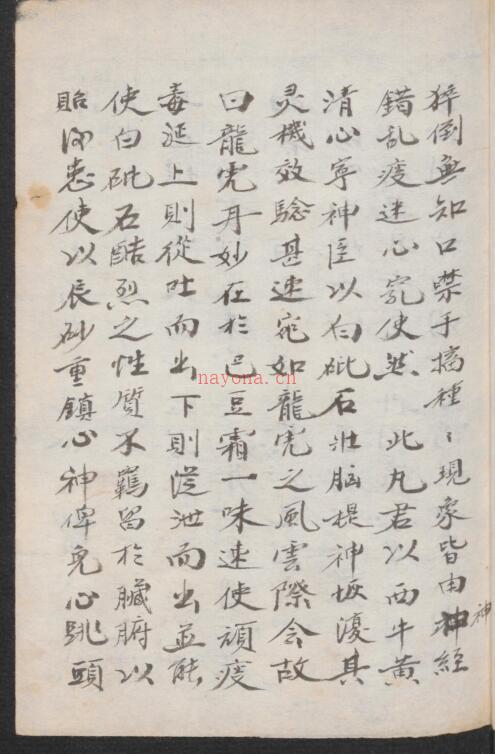 猝倒無知口噤手搐種〻現象皆由神經
神
錯乱痰迷心竅使然 此丸君以西牛黄
清心寧神臣以白砒石壮脑提神恢復其
灵機效驗甚速宛如龍虎之風雲際会故
曰龍虎丹妙在於巴豆霜一味速使頑痰
毒延上則從吐而出下則從泄而出並能
使白砒石酷烈之性質不羈留於臟腑以
貽後患使以辰砂重鎮心神俾免心跳頭
nayona.cn